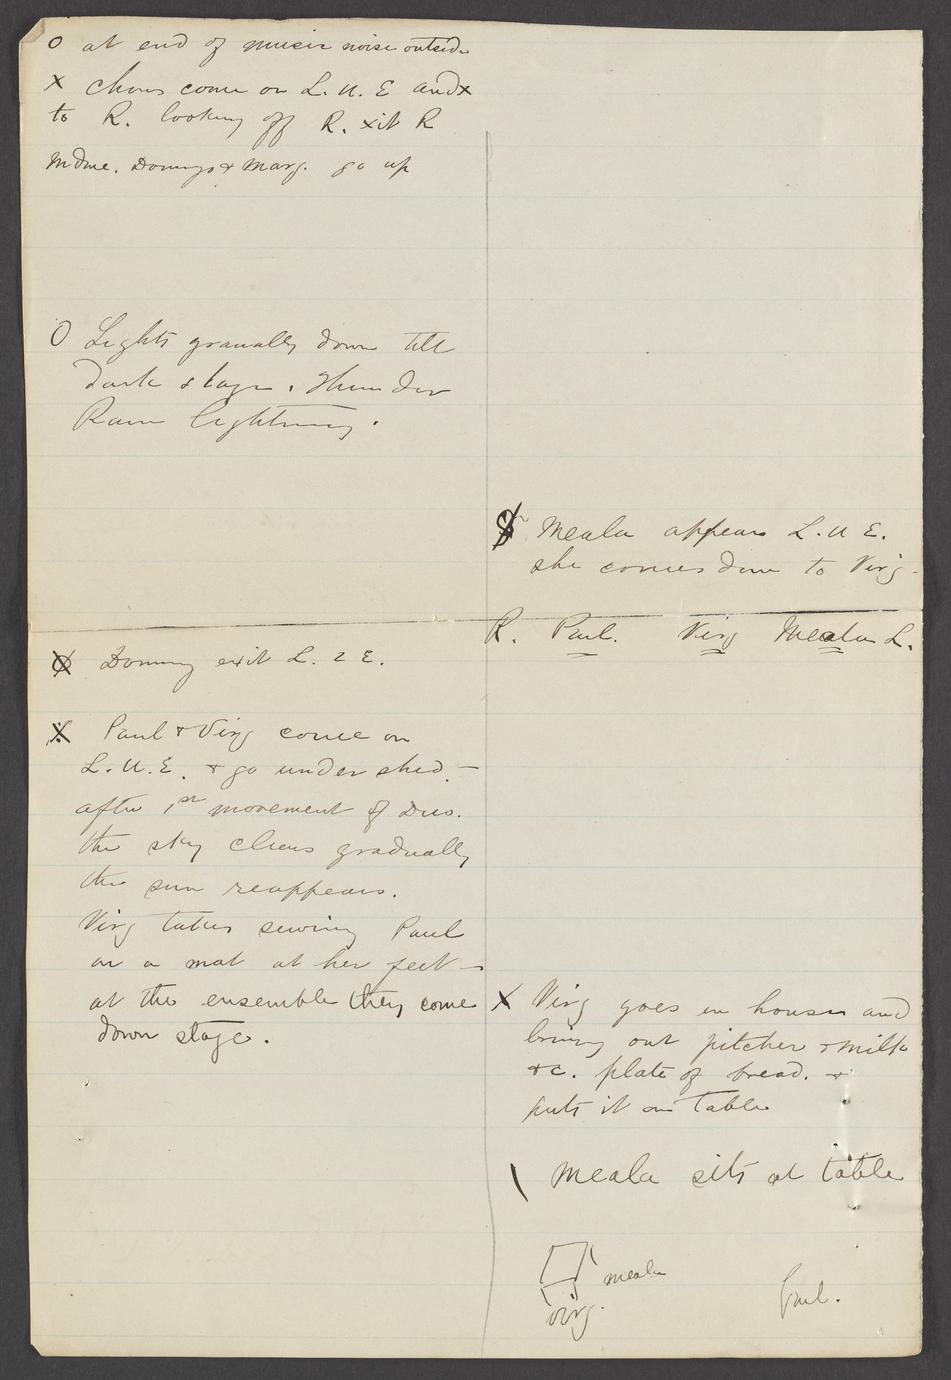 O at end of music noise outside
X chors come on L. U. E and x
to R. looking off R. xit R
Mdme. Domingo & Marg. go up
O Lights granally down till
dark stage. Thunder
Rain lightning.
Doming exit L. 2 E.
X Paul & Virg come on
L. U. E. & go under shed. –
after 1st movement of Duo.
the sky clears gradually
the sun reappears.
Virg takes sewing Paul
on a mat at her feet –
at the ensemble they come
down stage.
Meala appears L. U E.
she comes down to Virg -
R. Paul. Virg Meala L.
X Virg goes in house and
bring out pitcher & milk
&c. plate of bread. &
puts it on table
\ Meala sits at table
meala
virg.
Paul.